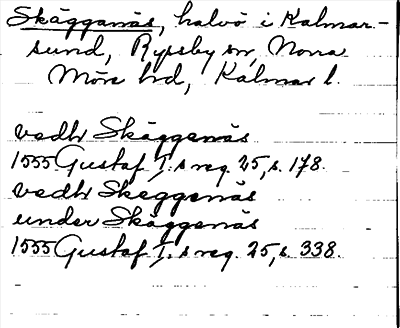 Skäggenäs, halvö i Kalmar-
sund, Ryssby sn, Norra
Möre hd, Kalmar l.
vedh Skäggenäs
1555 Gustaf I:s reg. 25, s. 178.
vedh Skeggenäs
under Skäggenäs
1555 Gustaf I:s reg. 25, s. 338.